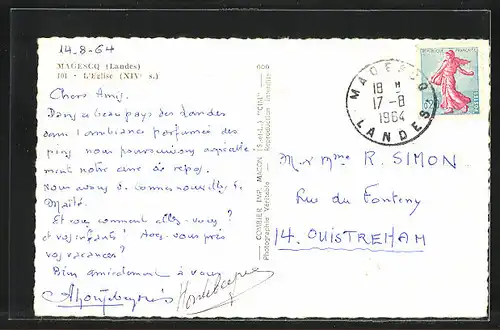 14-8-64
MAGESCQ (Landes)
101 - L'Eglise (XIVe s.)
Chers Amis.
Dans ce beau pays des Landes
dans l'ambiance parfumée des
pins nous poursuivons agréable-
ment notre cure de repos.
Nous avons de bonnes nouvelles de
Maïté.
Et vous comment allez-vous ?
et vos enfants ? Avez-vous pris
vos vacances ?
Bien amicalement à vous
COMBIER IMP. MACON (S.-et-L.) "CIM"
Photographie Véritable - Reproduction interdite
REPUBLIQUE FRANÇAISE
POSTES
MAGESCQ
18 H
17-8
1964
LANDES
Mr et Mme R. SIMON
Rue du Fonteny
14. OUISTREHAM